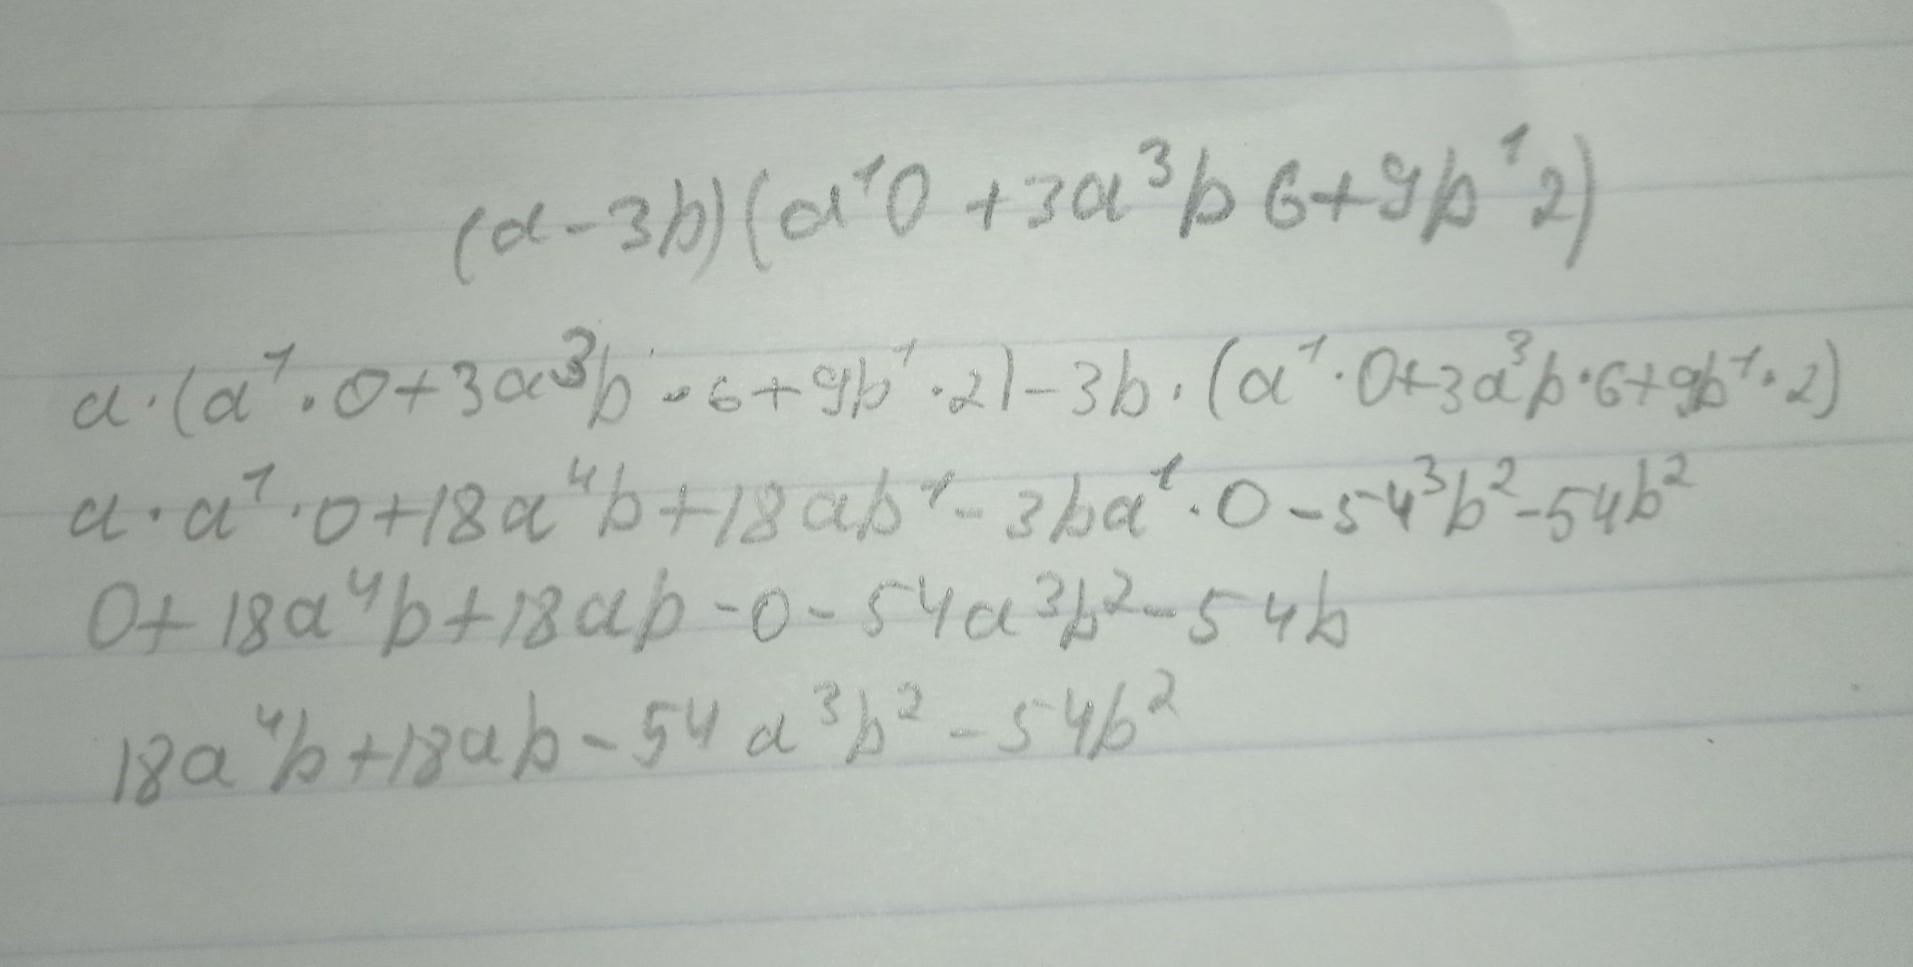 (a-3b)(a¹0+3a³b6+9b¹2)
a·(a¹·0+3a³b·6+9b¹·2)-3b·(a¹·0+3a³b·6+9b¹·2)
a·a¹·0+18a⁴b+18ab¹-3ba¹·0-54³b²-54b²
0+18a⁴b+18ab-0-54a³b²-54b
18a⁴b+18ab-54a³b²-54b²